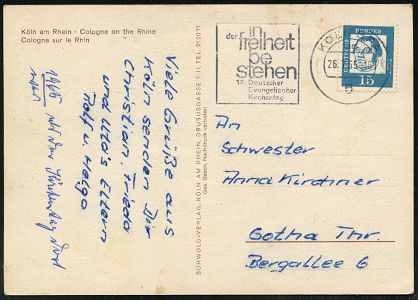 Köln am Rhein · Cologne on the Rhine
Cologne sur le Rhin
Viele Grüße aus
Köln senden Dir
Christian, Frieda
und Utta's Eltern
Rolf u. Helga
1965
SÜHWOLD-VERLAG, KÖLN AM RHEIN, DRUSUSGASSE 7-11, TEL. 21 00 71
Ges. Gesch. Nachdruck verboten
der
in
freiheit
be
stehen
12. Deutscher
Evangelischer
Kirchentag
KÖLN
26.
DEUTSCHE BUNDESPOST
15
An
Schwester
Anna Kirchner
Gotha Thr.
Bergallee 6